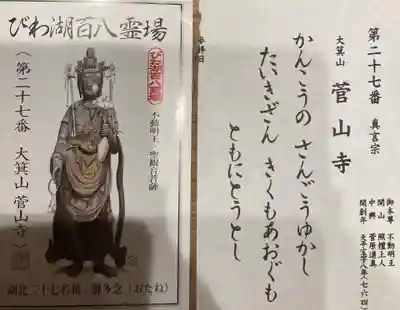 びわ湖百八霊場
びわ湖百八霊場
不動明王・聖観音菩薩
〈第二十七番 大箕山 菅山寺〉
湖北二十七名刹
(おたね)
第二十七番 真言宗
大箕山 菅山寺
かんこうの さんごうゆかし
たいきざん きくもあおぐも
ともにとうとし
御本尊 不動明王
開山 照檀上人
中興 菅原道真
開創年 天平宝字八年(七六四)